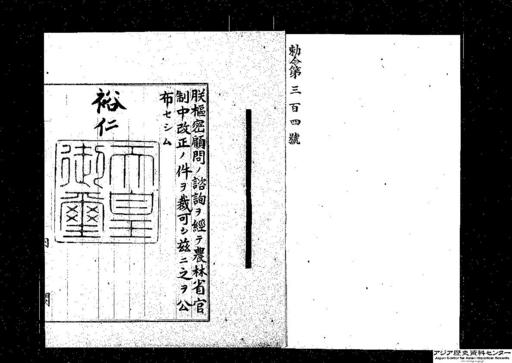 勅令第三百四號
朕樞密顧問ノ諮詢ヲ經テ農林省官
制中改正ノ件ヲ裁可シ茲ニ之ヲ公
布セシム
裕仁
天皇
御璽
内閣
アジア歴史資料センター
Japan Center for Asian Historical Records